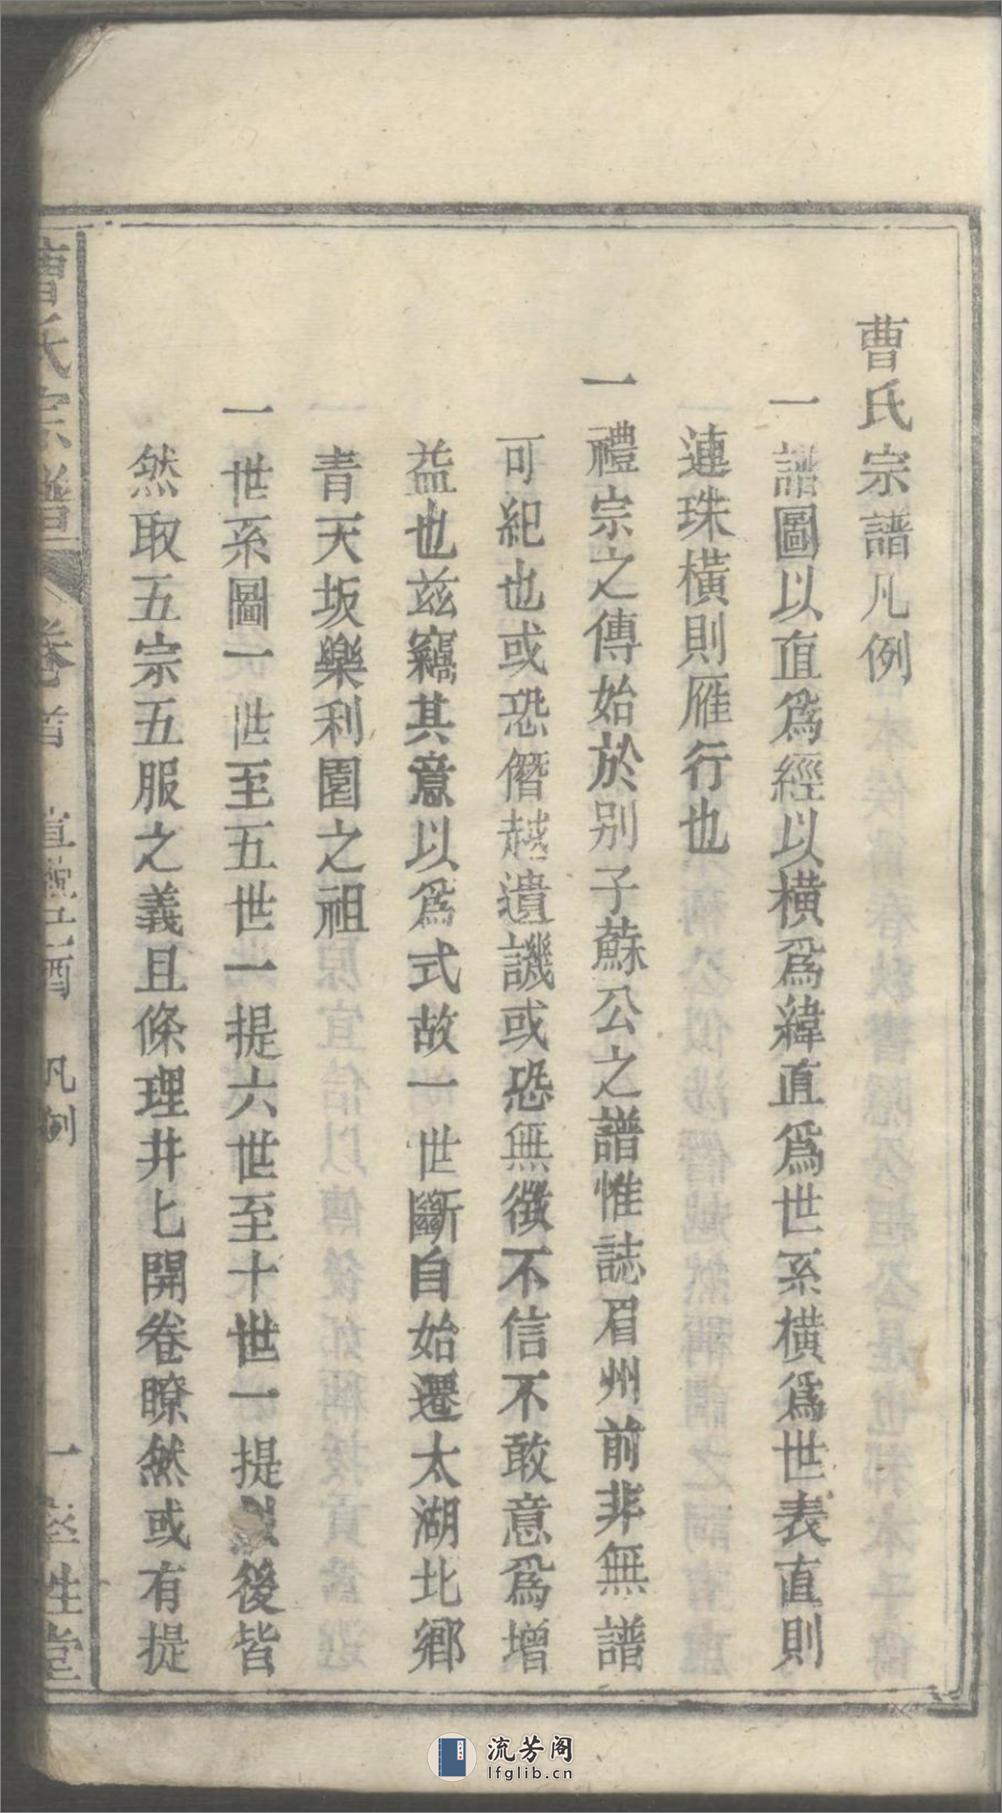 曹氏宗譜凡例
一譜圖以直爲經以橫爲緯直爲世系橫爲世表直則
連珠橫則雁行也
一禮宗之傳始於别子蘇公之譜惟誌眉州前非無譜
可紀也或恐僭越遺譏或恐無徵不信不敢意爲增
益也兹竊其意以爲式故一世斷自始遷太湖北鄉
青天坂樂利園之祖
一世系圖一世至五世一提六世至十世一提以後皆
然取五宗五服之義且條理井匕開卷瞭然或有提
曹氏宗譜 卷首 宣統辛酉 凡例 一 堂
流芳阁
lfglib.cn